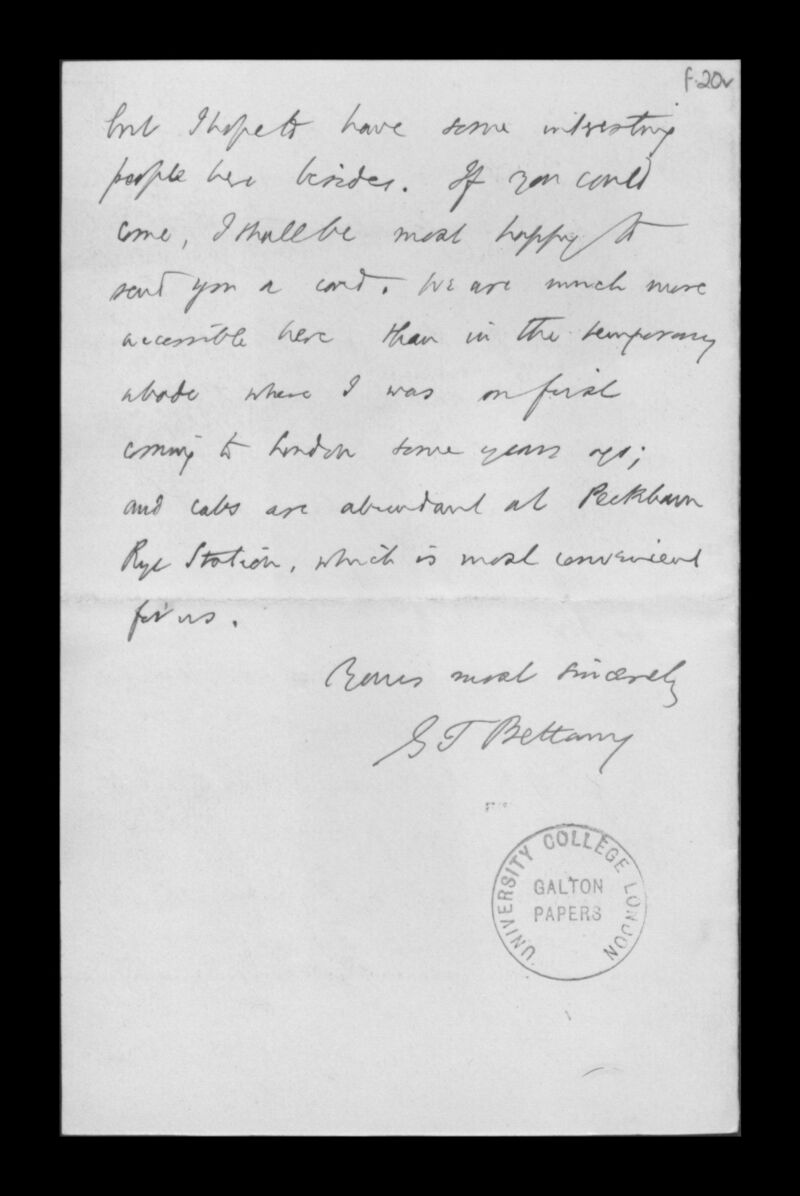 f.20v
but I hope to have some interesting
people here besides. If you could
come, I shall be most happy to
send you a card. We are much more
accessible here than in the temporary
abode where I was on first
coming to London some years ago;
and cabs are abundant at Peckham
Rye Station, which is most convenient
for us.
Yours most sincerely
G T Bettany
UNIVERSITY COLLEGE LONDON
GALTON
PAPERS